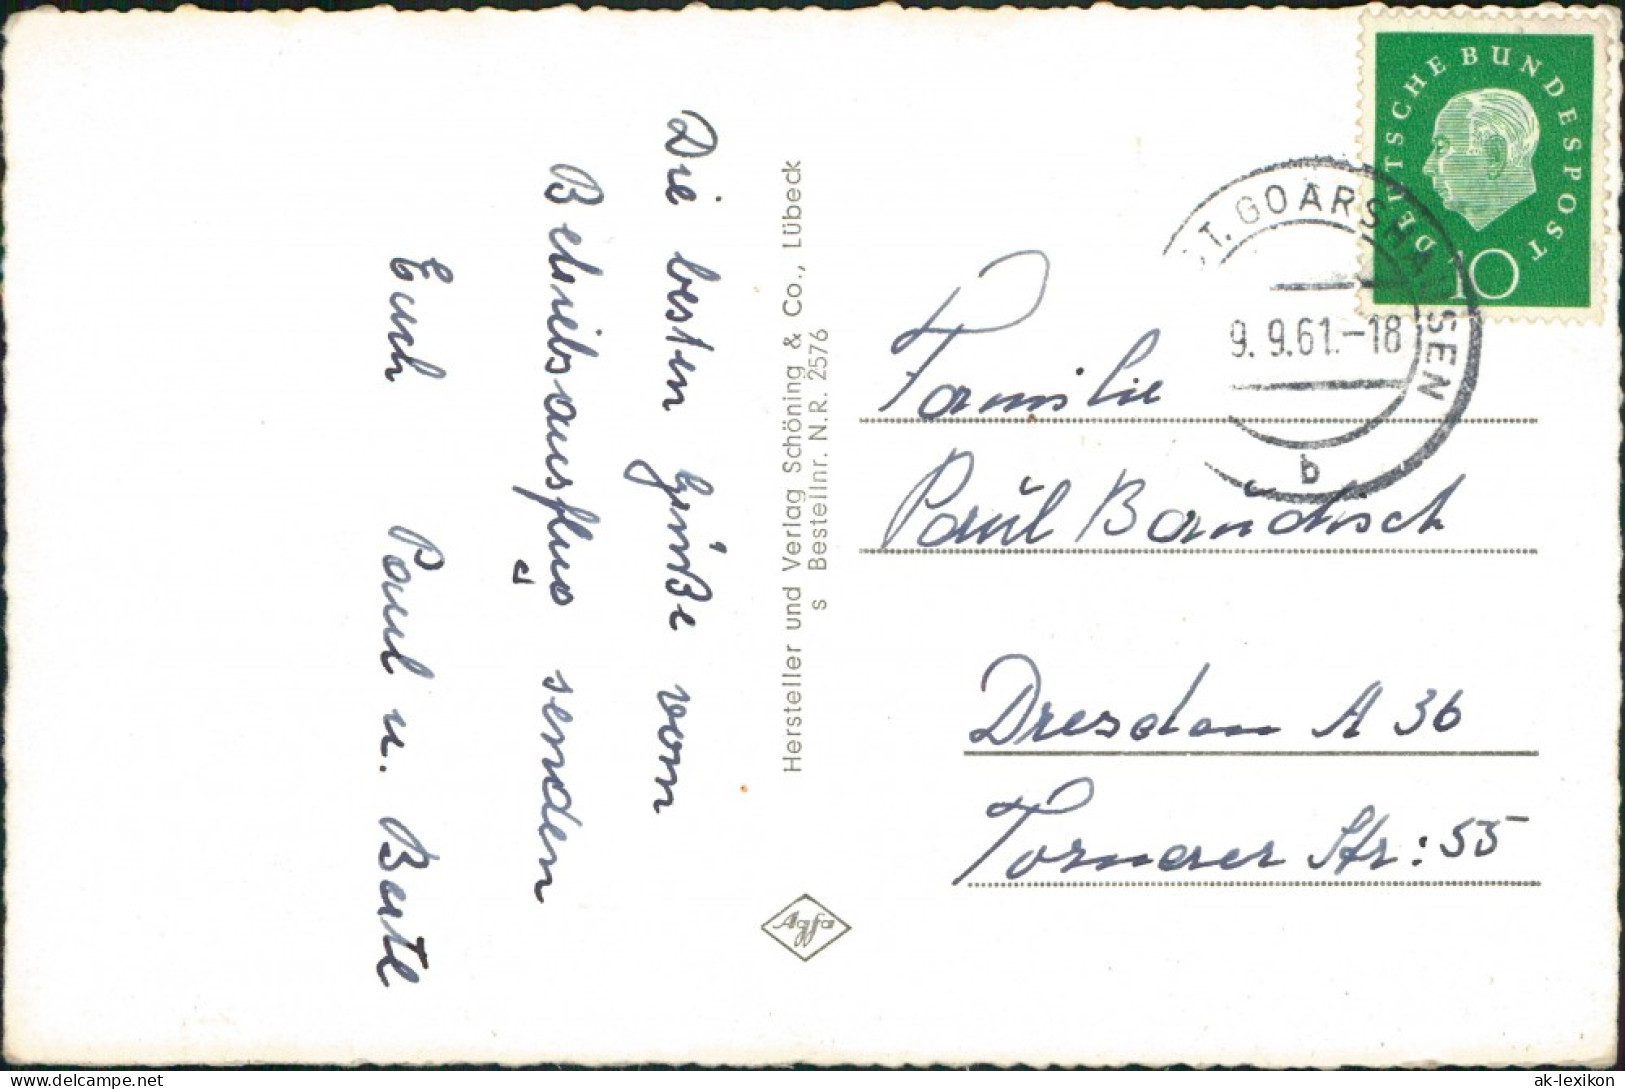 Die besten Grüße vom
Betriebsausflus senden
Euch Paul u. Berte
Hersteller und Verlag Schöning & Co., Lübeck
s Bestellnr. N.R. 2576
Agfa
DEUTSCHE BUNDESPOST
10
ST. GOARSHAUSEN
9. 9.61.-18
b
Familie
Paul
Dresden A 36
Tornaer Str: 55
delcampe.net
ak-lexikon